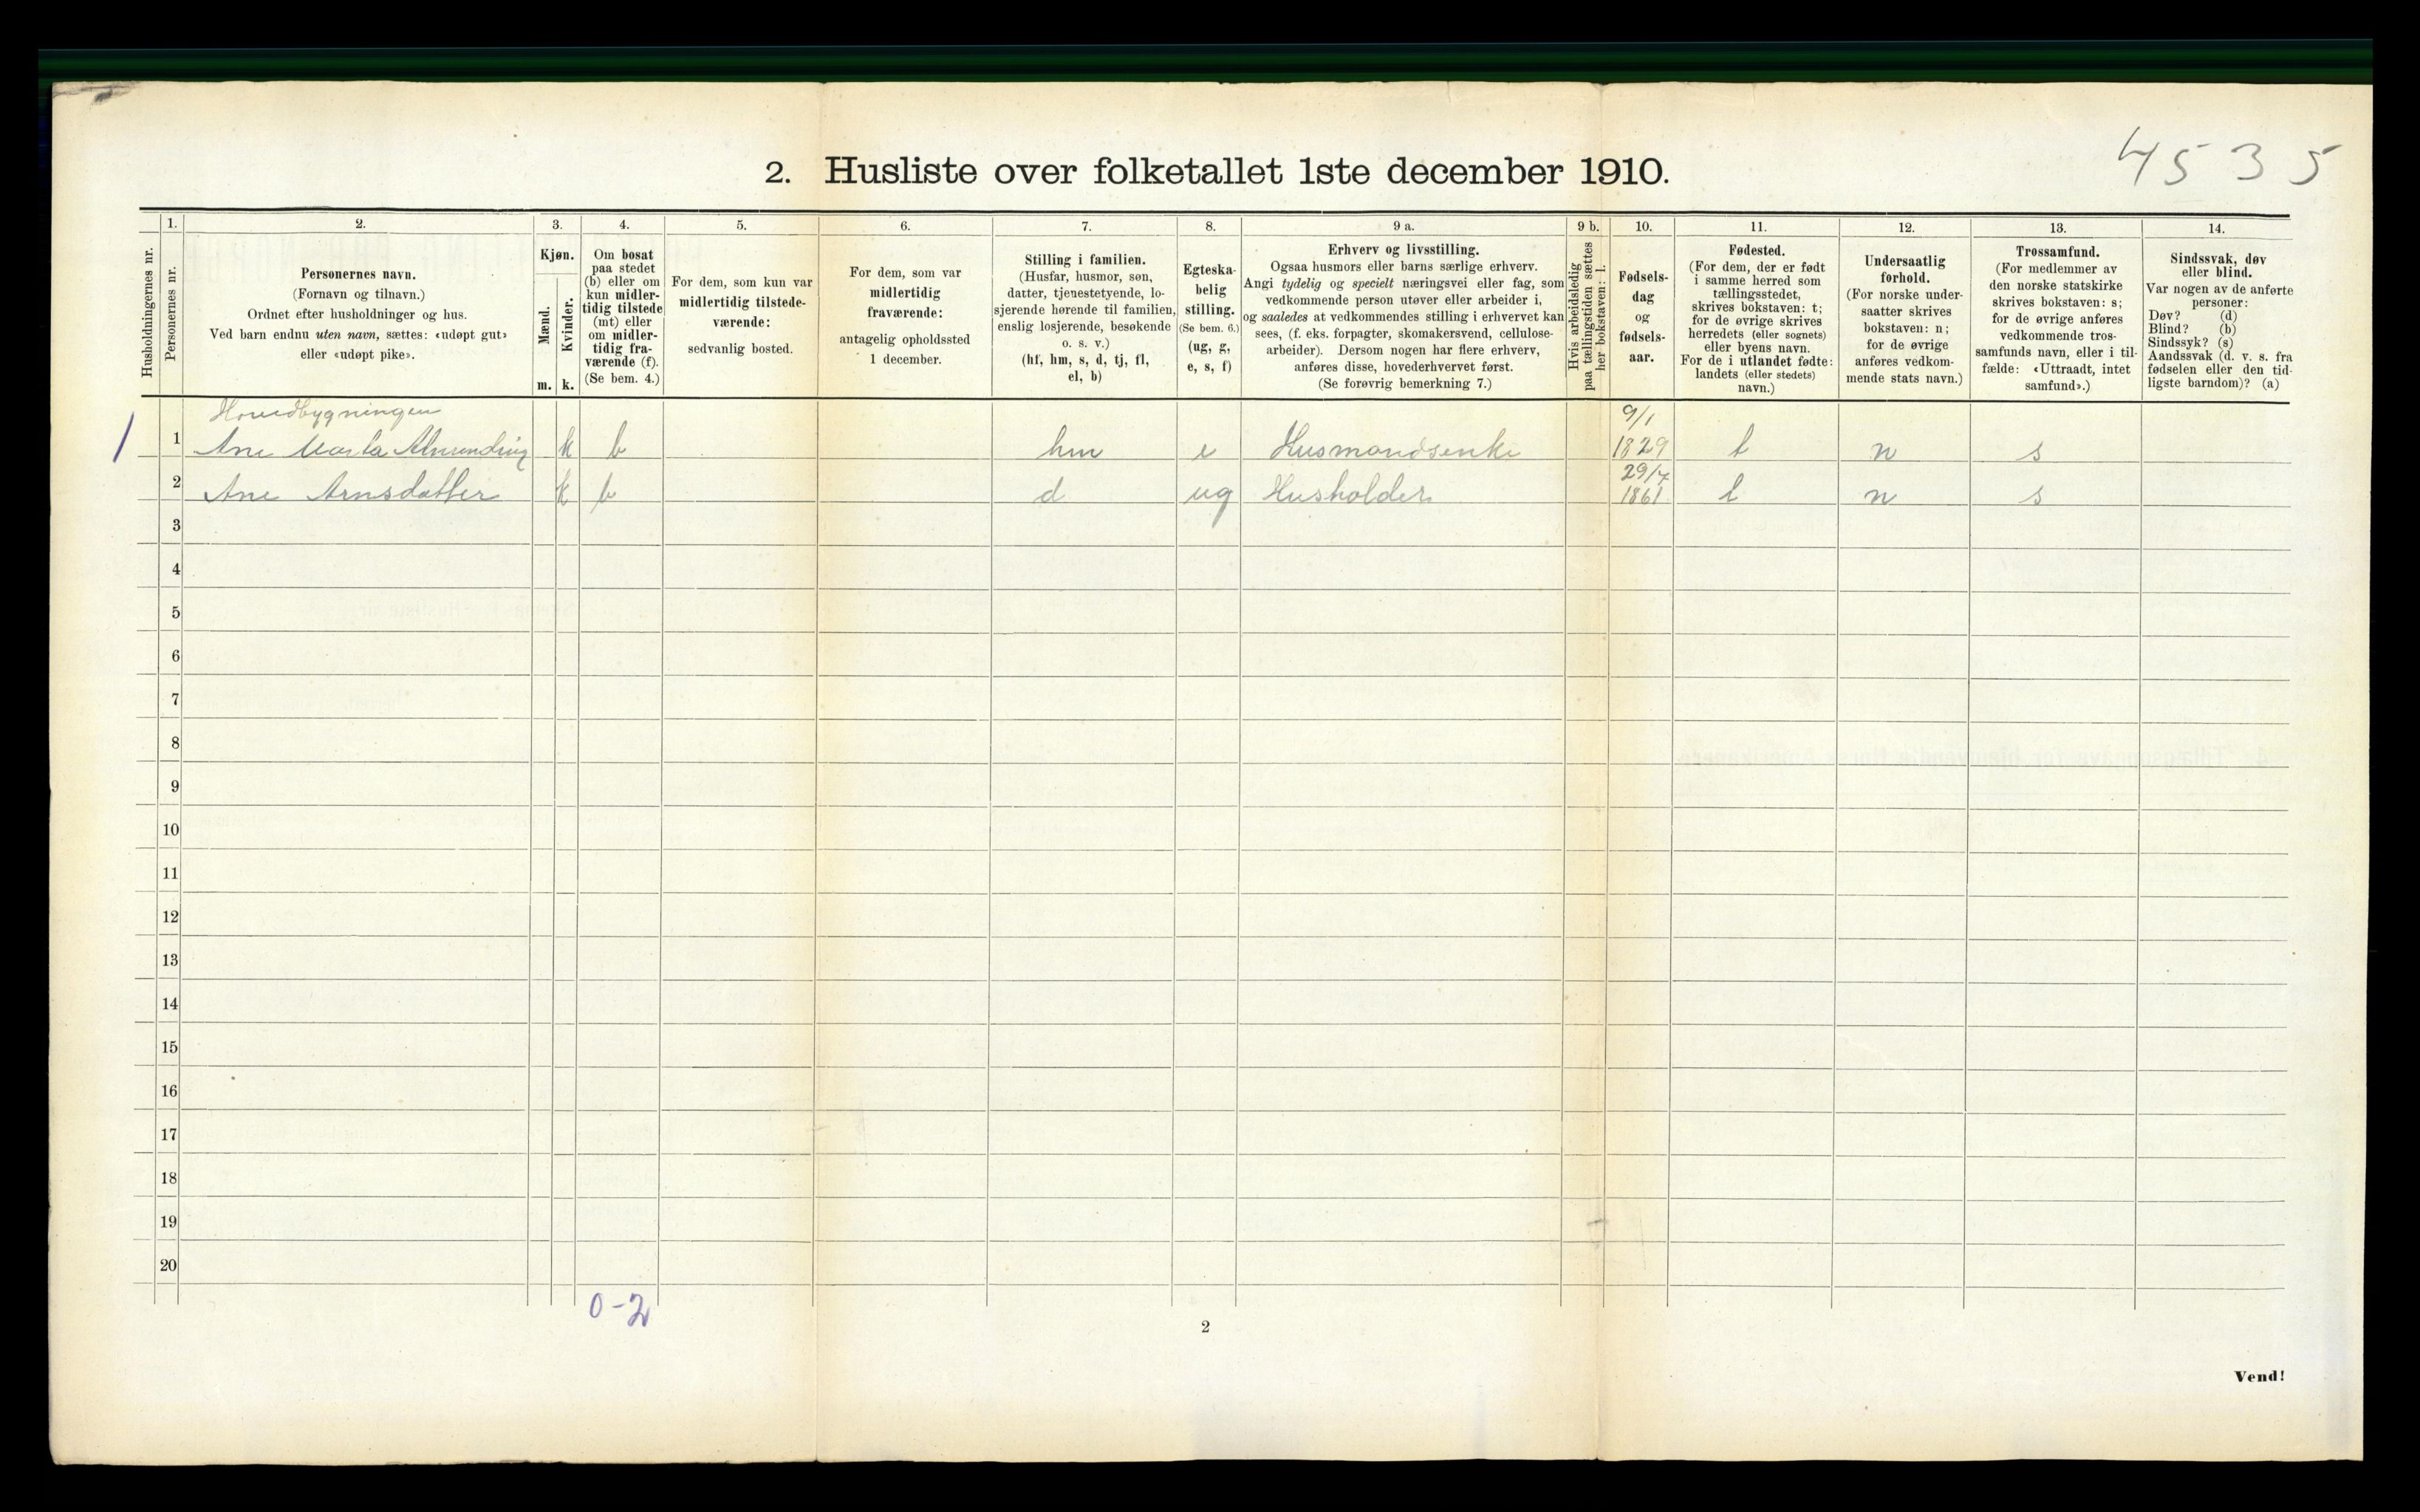 4535
2. Husliste over folketallet 1ste december 1910.
Husholdningernes nr.
1.
Personernes nr.
2.
Personernes navn.
(Fornavn og tilnavn.)
Ordnet efter husholdninger og hus.
Ved barn endnu uten navn, sættes: «udøpt gut»
eller «udøpt pike».
3.
Kjøn.
Mænd.
m.
Kvinder.
k.
4.
Om bosat
paa stedet
(b) eller om
kun midler-
tidig tilstede
(mt) eller
om midler-
tidig fra-
værende (f).
(Se bem. 4.)
5.
For dem, som kun var
midlertidig tilstede-
værende:
sedvanlig bosted.
6.
For dem, som var
midlertidig
fraværende:
antagelig opholdssted
1 december.
7.
Stilling i familien.
(Husfar, husmor, søn,
datter, tjenestetyende, lo-
sjerende hørende til familien,
enslig losjerende, besøkende
o. s. v.)
(hf, hm, s, d, tj, fl,
el, b)
8.
Egteska-
belig
stilling.
(Se bem. 6.)
(ug, g,
e, s, f)
9 a.
Erhverv og livsstilling.
Ogsaa husmors eller barns særlige erhverv.
Angi tydelig og specielt næringsvei eller fag, som
vedkommende person utøver eller arbeider i,
og saaledes at vedkommendes stilling i erhvervet kan
sees, (f. eks. forpagter, skomakersvend, cellulose-
arbeider). Dersom nogen har flere erhverv,
anføres disse, hovederhvervet først.
(Se forøvrig bemerkning 7.)
9 b.
Hvis arbeidsledig
paa tællingstiden sættes
her bokstaven: l.
10.
Fødsels-
dag
og
fødsels-
aar.
11.
Fødested.
(For dem, der er født
i samme herred som
tællingsstedet,
skrives bokstaven: t;
for de øvrige skrives
herredets (eller sognets)
eller byens navn.
For de i utlandet fødte:
landets (eller stedets)
navn.)
12.
Undersaatlig
forhold.
(For norske under-
saatter skrives
bokstaven: n;
for de øvrige
anføres vedkom-
mende stats navn.)
13.
Trossamfund.
(For medlemmer av
den norske statskirke
skrives bokstaven: s;
for de øvrige anføres
vedkommende tros-
samfunds navn, eller i til-
fælde: «Uttraadt, intet
samfund».)
14.
Sindssvak, døv
eller blind.
Var nogen av de anførte
personer:
Døv? (d)
Blind? (b)
Sindssyk? (s)
Aandssvak (d. v. s. fra
fødselen eller den tid-
ligste barndom)? (a)
Hovedbygningen
1 1 Ane k b hm e Husmandsenke 9/1 1829 t n s
2 Ane Arnsdatter k b d ug Husholder 29/7 1861 t n s
3
4
5
6
7
8
9
10
11
12
13
14
15
16
17
18
19
20
0-2
2
Vend!